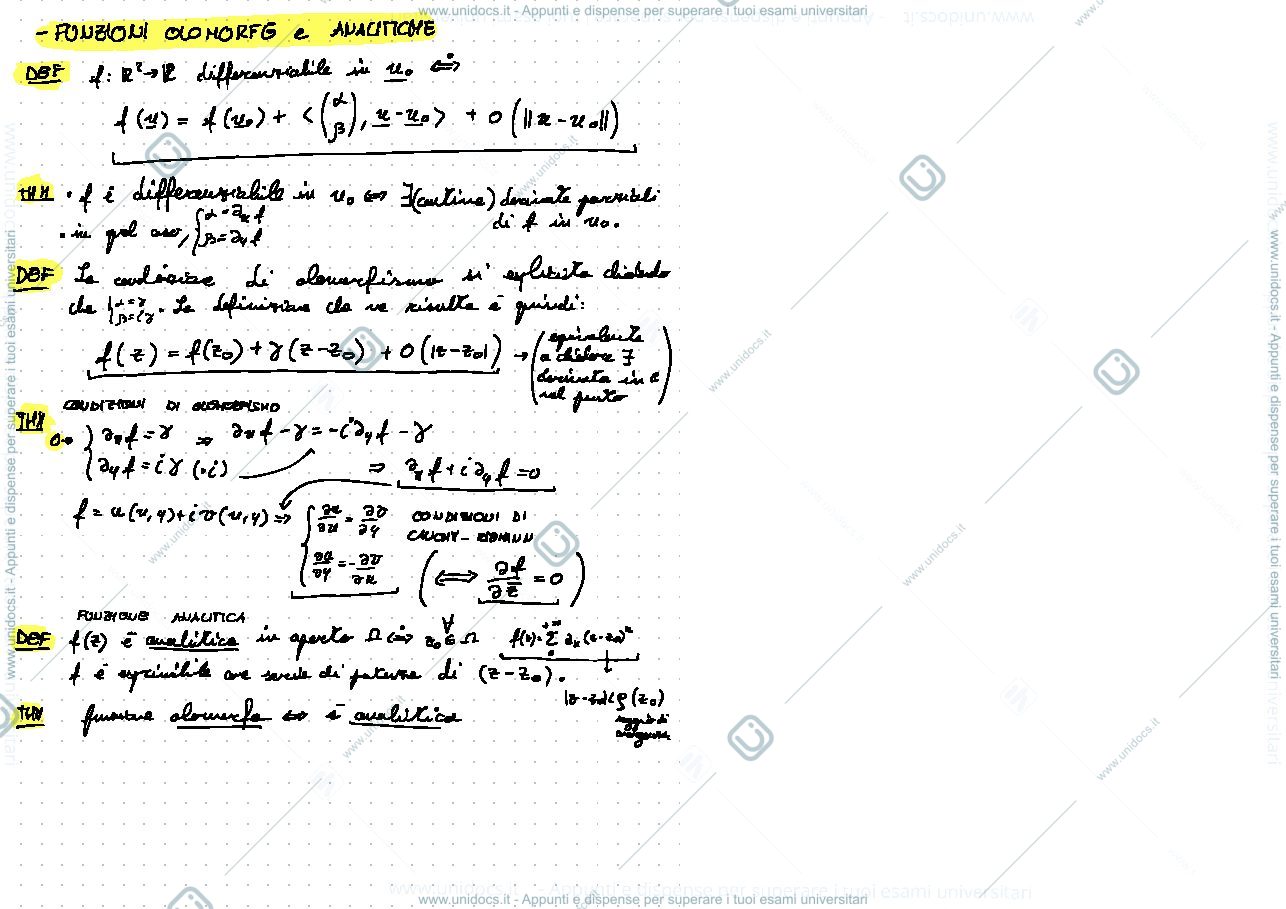 www.unidocs.it - Appunti e dispense per superare i tuoi esami universitari
- FUNZIONI OLOMORFE e ANALITICHE
DEF f: ℝ² → ℝ differenziabile in u₀ ⟺
f(u) = f(u₀) + <(α β), u - u₀> + o(||u - u₀||)
THM • f è differenziabile in u₀ ⟺ ∃ (continue) derivate parziali
di f in u₀.
• in quel caso, { α = ∂ₓf
β = ∂ᵧf
DEF La condizione di olomorfismo si esplicita chiedendo
che { α = γ β = iγ . La definizione che ne risulta è quindi:
f(z) = f(z₀) + γ(z - z₀) + o(|z - z₀|) → (equivalente
a chiedere ∃
derivata in ℂ
nel punto)
CONDIZIONI DI OLOMORFISMO
THM
{ ∂ₓf = γ ⇒ ∂ₓf - γ = -i∂ᵧf - γ
∂ᵧf = iγ (·i) ⇒ ∂ₓf + i∂ᵧf = 0
f = u(x,y) + iv(x,y) ⇒ { ∂u/∂x = ∂v/∂y CONDIZIONI DI
CAUCHY - RIEMANN
∂u/∂y = -∂v/∂x (⟺ ∂f/∂z̄ = 0)
FUNZIONE ANALITICA
DEF f(z) è analitica in aperto Ω ⟺ ∀ z₀ ∈ Ω f(z) = Σ₀^{+∞} aₖ(z - z₀)ᵏ
f è esprimibile come serie di potenze di (z - z₀).
|z - z₀| < ρ(z₀)
raggio di
convergenza
THM funzione olomorfa ⟺ è analitica
www.unidocs.it - Appunti e dispense per superare i tuoi esami universitari